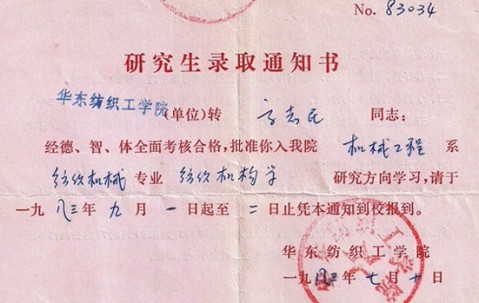 No. 83034
研究生录取通知书
华东纺织工学院(单位)转 方志民 同志:
经德、智、体全面考核合格,批准你入我院 机械工程 系
纺织机械 专业 纺织机构学 研究方向学习,请于
一九八三年九月一日起至二日止凭本通知到校报到。
华东纺织工学院
一九八三年七月十日